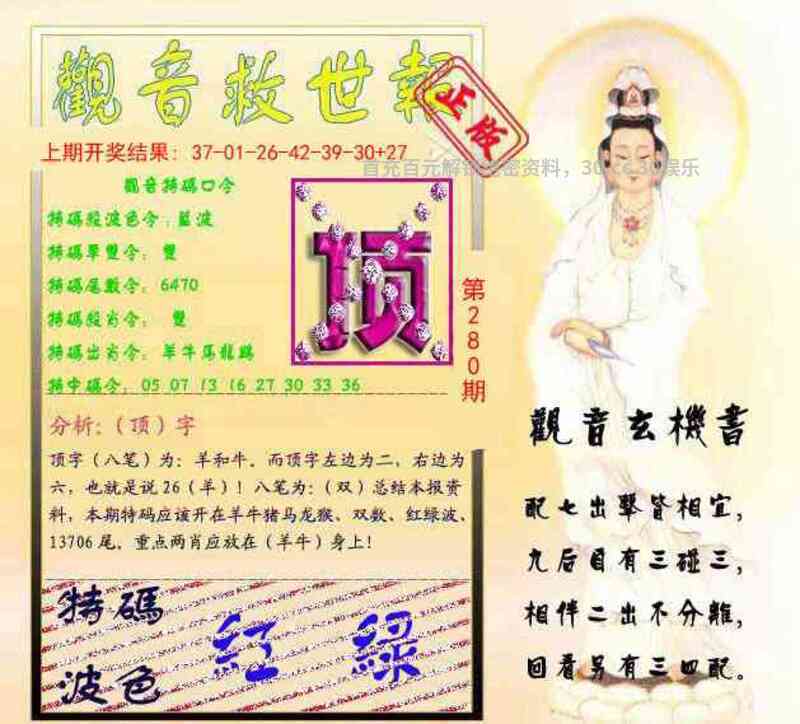 觀音救世報
正版
上期开奖结果：37-01-26-42-39-30+27
首充百元解锁绝密资料，30.cc30娱乐
觀音特碼口令
特碼殺波色令：藍波
特碼單雙令：雙
特碼尾數令：6470
特碼殺肖令： 雙
特碼出肖令：羊牛馬龍鷄
特中碼令：05 07 13 16 27 30 33 36
顶
第280期
分析：（顶）字
顶字（八笔）为：羊和牛。而顶字左边为二，右边为
六，也就是说26（羊）！八笔为：（双）总结本报资
料，本期特码应该开在羊牛猪马龙猴、双数、红绿波、
13706尾。重点两肖应放在（羊牛）身上！
特碼
波色
紅 綠
觀音玄機書
配七出擊皆相宜，
九后目有三碰三，
相伴二出不分離，
回看另有三四配。